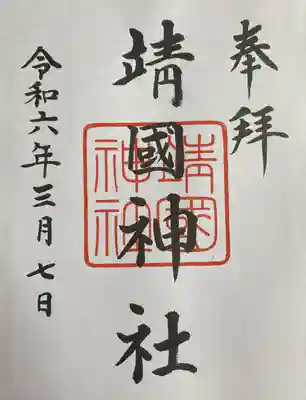 奉拝
靖國神社
靖国神社
令和六年三月七日